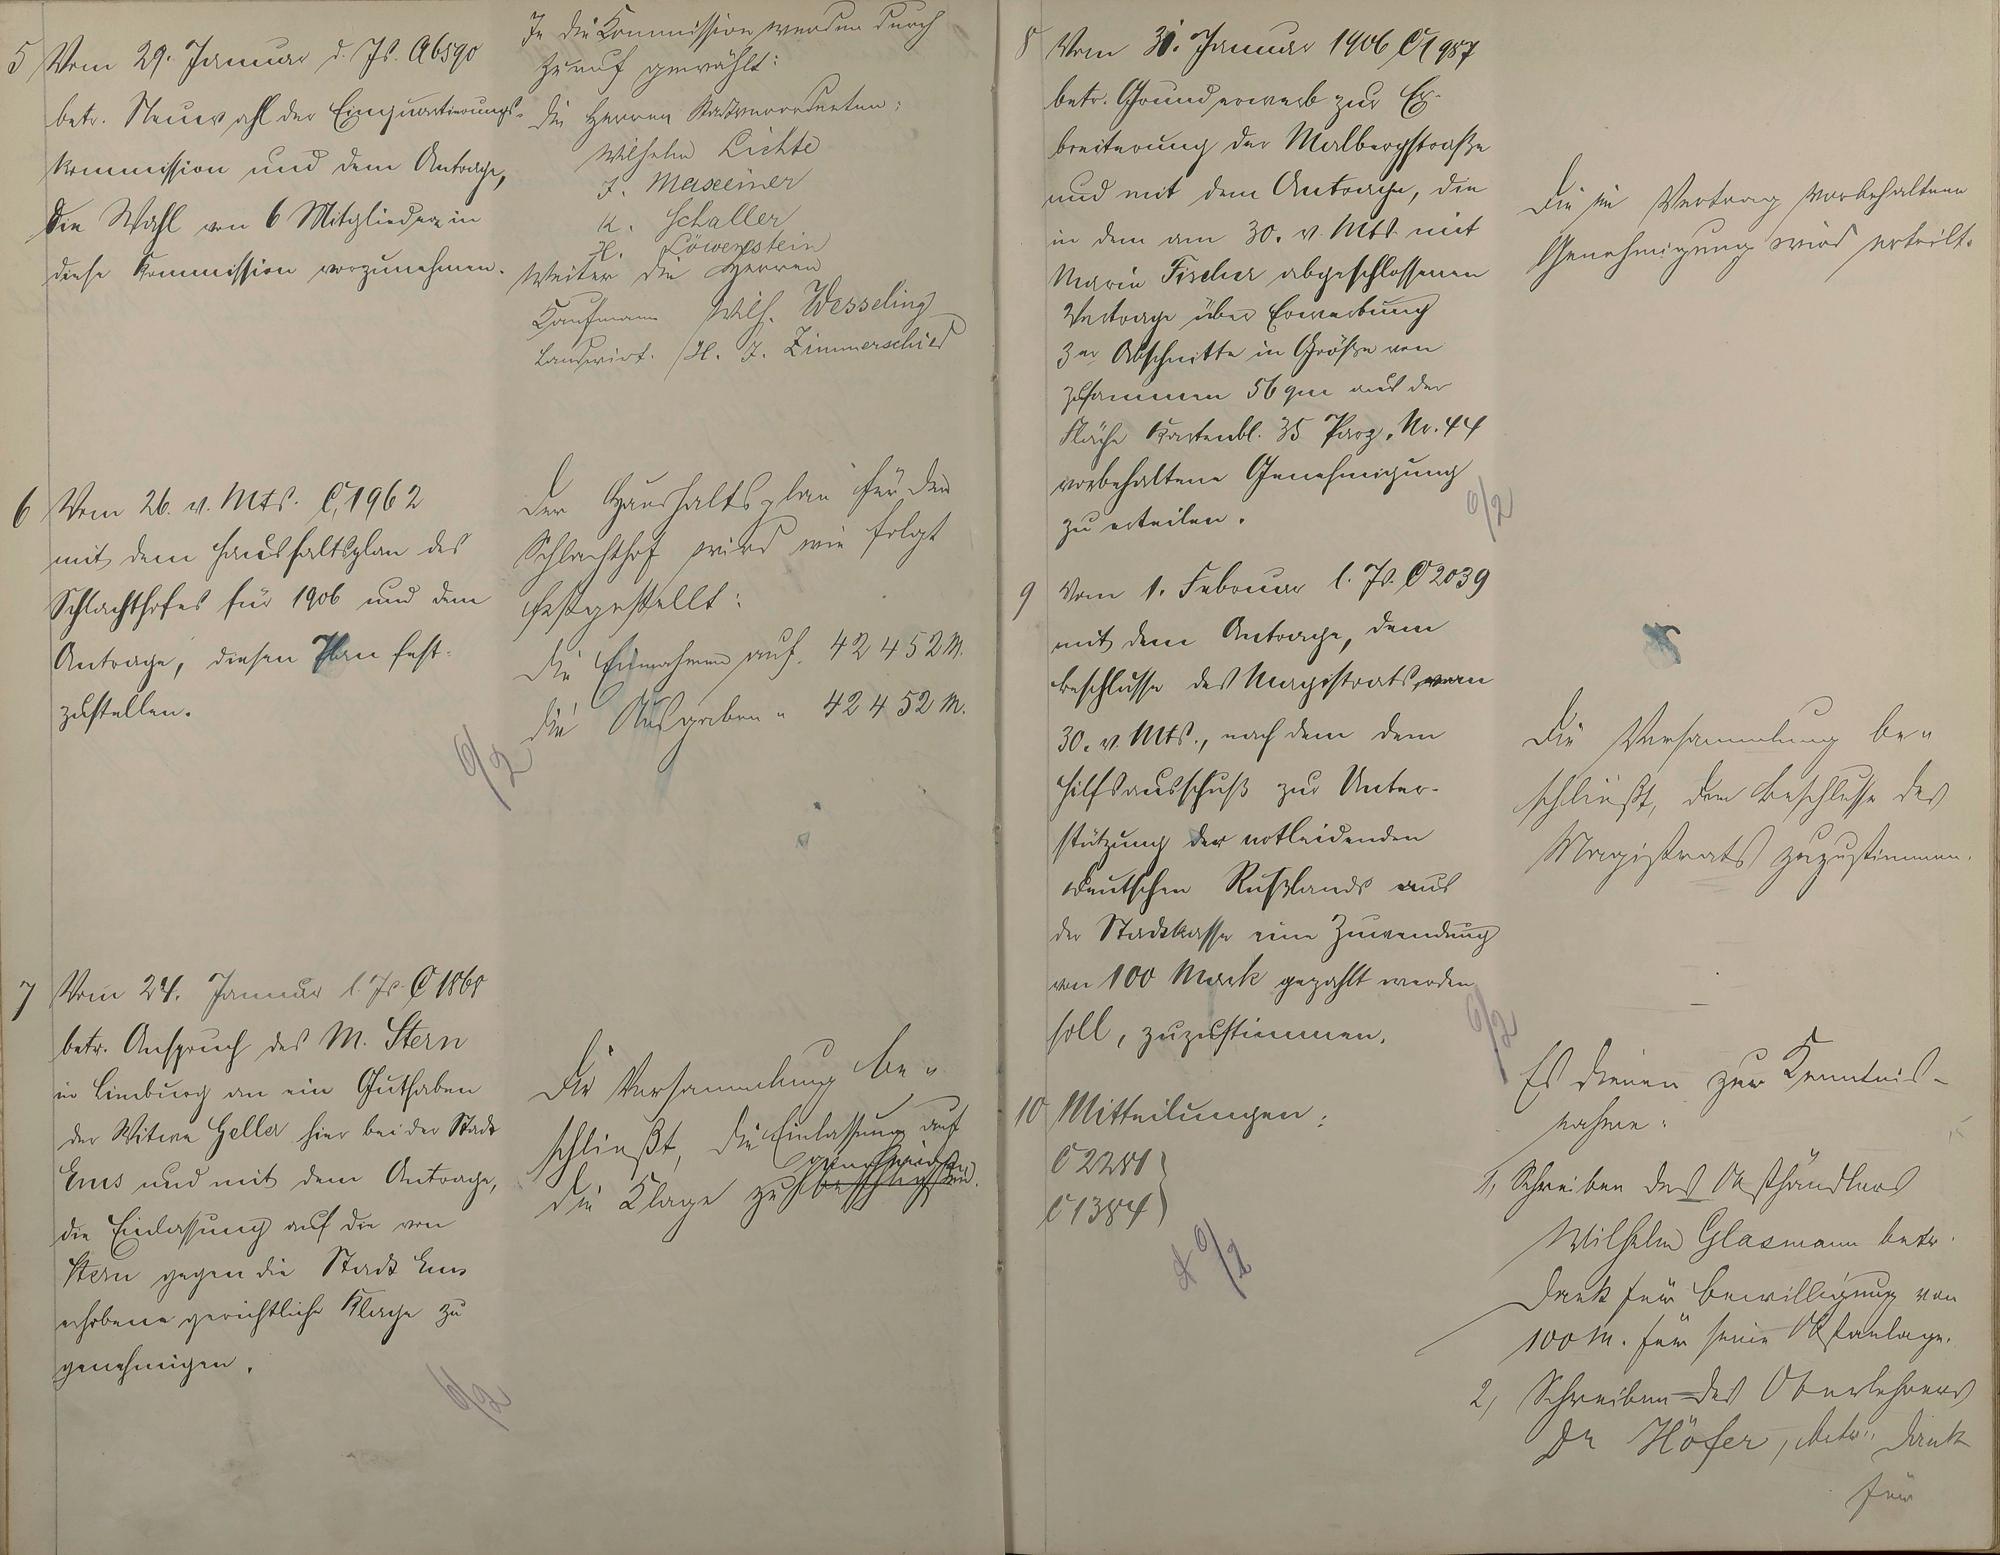 5 Vom 29. Januar d. Js. A 6590
betr. Neuwahl der Einquartierungs-
kommission und dem Antrage,
die Wahl von 6 Mitgliedern in
diese Kommission vorzunehmen.
In die Kommission werden durch
Zuruf gewählt:
die Herren Stadtverordneten:
Wilhelm Lichte
J. Maxeiner
K. Schaller
H. Löwenstein
Weiter die Herren
Kaufmann Wilh. Wesseling
Landwirt H. J. Zimmerschied
6 Vom 26. v. Mts. C 1962
mit dem Haushaltsplan des
Schlachthofes für 1906 und dem
Antrage, diesen Plan fest-
zustellen.
6/2
Der Haushaltsplan für den
Schlachthof wird wie folgt
festgestellt:
die Einnahmen auf 42 452 M.
die Ausgaben " 42 452 M.
7 Vom 24. Januar l. Js. C 1868
betr. Anspruch des M. Stern
in Limburg an ein Guthaben
der Witwe Heller hier bei der Stadt
Ems und mit dem Antrage,
die Einlassung auf die von
Stern gegen die Stadt Ems
erhobene gerichtliche Klage zu
genehmigen.
6/2
Die Versammlung be-
schließt, die Einlassung auf
genehmigen
die Klage zu beschließen.
8 Vom 31. Januar 1906 C 1987
betr. Grunderwerb zur Er-
breiterung der Malbergstraße
und mit dem Antrage, die
in dem am 30. v. Mts. mit
Marie Fischer abgeschlossenen
Vertrage über Erwerbung
der Abschnitte in Größe von
zusammen 56 qm aus der
Fläche Kartenbl. 35 Parz. Nr. 44
vorbehaltene Genehmigung
zu erteilen.
6/2
Die im Vertrag vorbehaltene
Genehmigung wird erteilt.
9 Vom 1. Februar l. Js. C 2039
mit dem Antrage, dem
Beschlusse des Magistrats vom
30. v. Mts., nach dem dem
Hilfsausschuß zur Unter-
stützung der notleidenden
Deutschen Rußlands aus
der Stadtkasse eine Zuwendung
von 100 Mark gezahlt werden
soll, zuzustimmen.
6/2
Die Versammlung be-
schließt, dem Beschlusse des
Magistrats zuzustimmen.
10 Mitteilungen:
C 2281
C 1384
6/2
Es dienen zur Kenntnis-
nahme:
1, Schreiben des Obsthändlers
Wilhelm Glasmann betr.
Dank für Bewilligung von
100 M. für seine Obstanlage.
2, Schreiben des Oberlehrers
Dr Höfer, betr. Dank
für